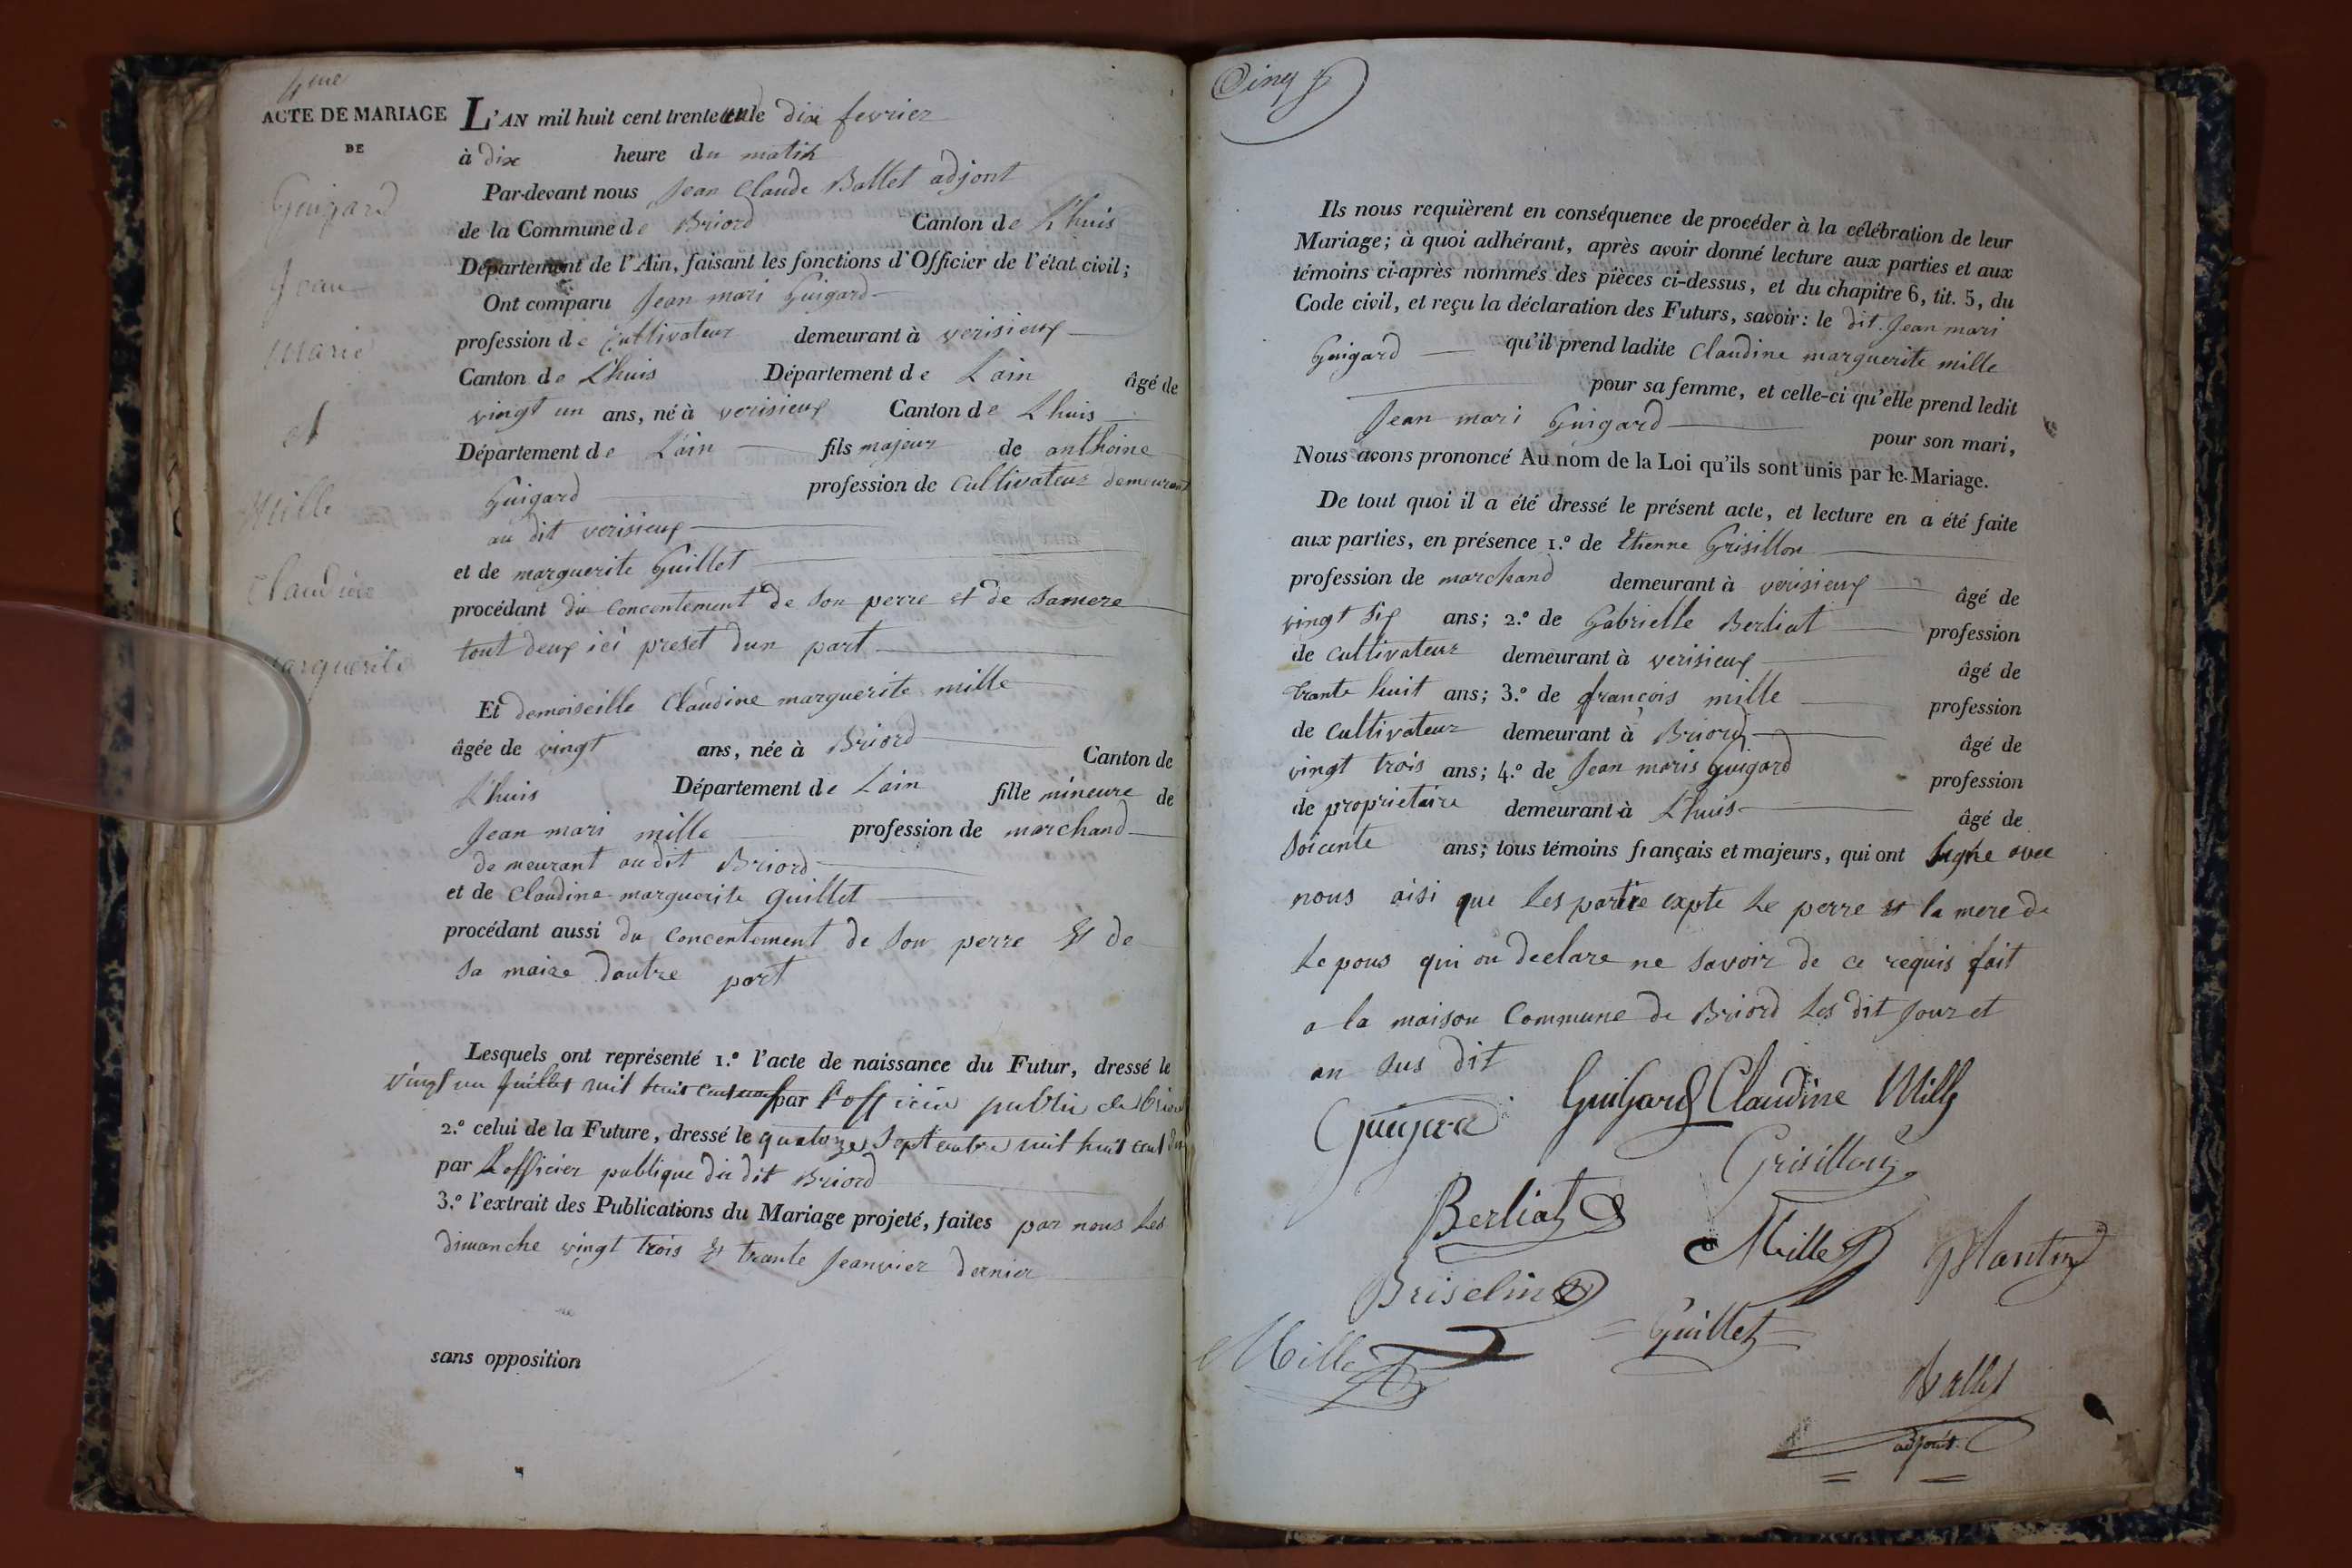 4eme
ACTE DE MARIAGE
DE
Guigard
Jean
Marie
et
Mille
Claudine
Marguerite
L'AN mil huit cent trente un le dix fevrier
à dix heure du matin
Par-devant nous Jean Claude Ballet adjont
de la Commune de Briord Canton de Lhuis
Département de l'Ain, faisant les fonctions d'Officier de l'état civil;
Ont comparu Jean mari Guigard
profession de Cultivateur demeurant à verisieux
Canton de Lhuis Département de Lain âgé de
vingt un ans, né à verisieux Canton de Lhuis
Département de Lain fils majeur de anthoine
Guigard profession de Cultivateur demeurant
au dit verisieux
et de marguerite Guillet
procédant du concentement de son perre et de sa mere
tout deux ici preset dun part
Et demoiseille Claudine marguerite mille
âgée de vingt ans, née à Briord Canton de
Lhuis Département de Lain fille mineure de
Jean mari mille profession de marchand
de meurant au dit Briord
et de Claudine marguerite guillet
procédant aussi du concentement de son perre Et de
sa maire dautre part
Lesquels ont représenté 1.º l'acte de naissance du Futur, dressé le
vingt un juillet mil huit cent par l'officier public de briord
2.º celui de la Future, dressé le quatorze septembre mil huit cent dix
par Lofficier publique du dit Briord
3.º l'extrait des Publications du Mariage projeté, faites par nous les
dimanche vingt trois Et trante Jeanvier dernier
sans opposition
Cinq
Ils nous requièrent en conséquence de procéder à la célébration de leur
Mariage; à quoi adhérant, après avoir donné lecture aux parties et aux
témoins ci-après nommés des pièces ci-dessus, et du chapitre 6, tit. 5, du
Code civil, et reçu la déclaration des Futurs, savoir: le dit Jean mari
Guigard qu'il prend ladite Claudine marguerite mille
pour sa femme, et celle-ci qu'elle prend ledit
Jean mari Guigard pour son mari,
Nous avons prononcé Au nom de la Loi qu'ils sont unis par le Mariage.
De tout quoi il a été dressé le présent acte, et lecture en a été faite
aux parties, en présence 1.º de Etienne Grisillon
profession de marchand demeurant à verisieux âgé de
vingt six ans; 2.º de Gabrielle Berliat profession
de cultivateur demeurant à verisieux âgé de
trante huit ans; 3.º de françois mille profession
de Cultivateur demeurant à Briord âgé de
vingt trois ans; 4.º de Jean maris guigard profession
de proprietaire demeurant à Lhuis âgé de
soicente ans; tous témoins français et majeurs, qui ont signe avec
nous aisi que les partie expte le perre et la mere de
Le pous qui on declare ne savoir de ce requis fait
a la maison Commune de Briord Les dit jour et
an sus dit
Guigard Guigard Claudine Mille
Grisillon
Berliat Mille Plantin
Briselin Guillet
Mille
Ballet
adjoint